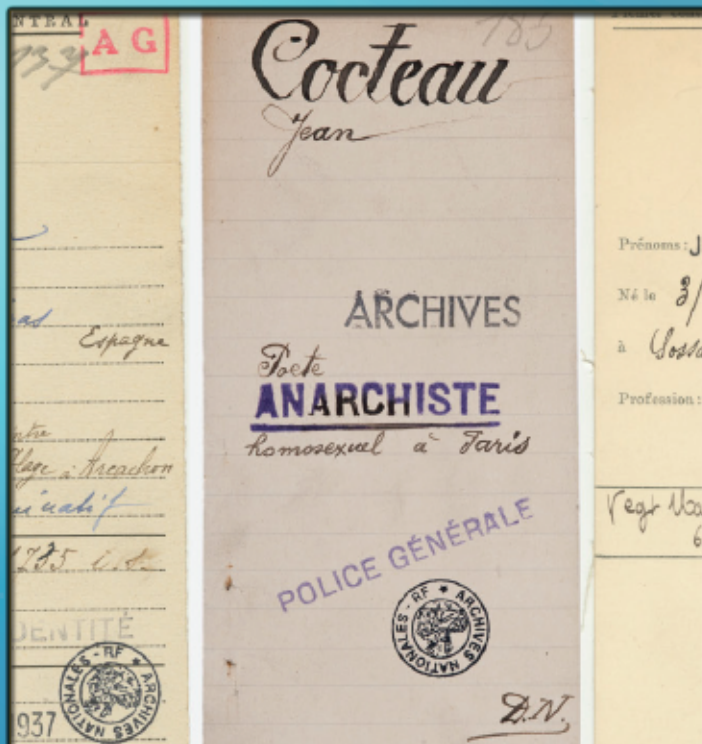 NTRAL
A G
Espagne
Plage à Arcachon
IDENTITÉ
ARCHIVES NATIONALES - RF
1937
785
Cocteau
Jean
ARCHIVES
Poète
ANARCHISTE
homosexuel à Paris
POLICE GÉNÉRALE
ARCHIVES NATIONALES - RF
D.N.
Prénoms : J
Né le 3/
à
Profession :